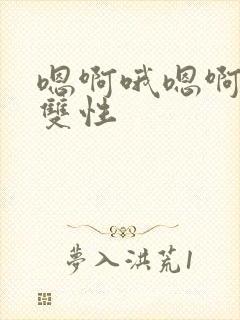 嗯啊哦嗯啊
雙性
夢入洪荒1